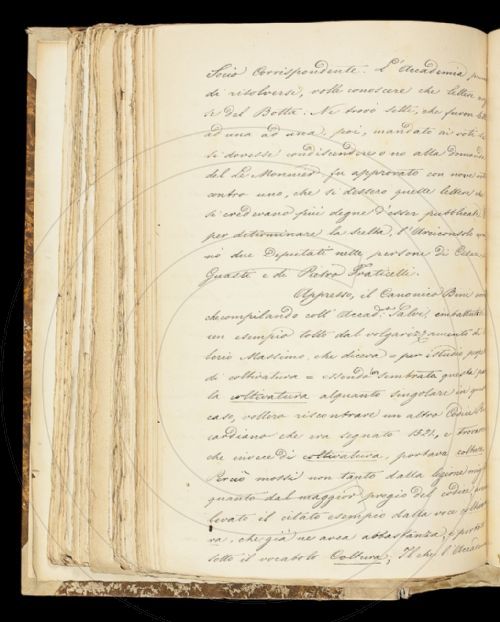 Socio Corrispondente. L'Accademia
da risolversi, volle conoscere che lettere
se del Botta: Ne trovò sette, che furon lette
ad una ad una, poi, mandato ai voti se
si dovesse condiscendere o no alla domanda
del Le Monnier fu approvato con nove
contro uno, che si dessero quelle lettere che
si credevano più degne d'esser pubblicate
per determinare la scelta, l'Arciconsolo
nò due Deputati nelle persone di Cesare
Guasti e di Pietro Fraticelli.
Appresso, il Canonico Bini
che compilando coll' Accad.º Salvi,
un esempio tolto dal volgarizzamento di
lerio Massimo, che diceva = per istudio
di coltivatura = essendo sembrata questa
la coltivatura alquanto singolare in quel
caso, vollero riscontrare un altro Codice
cardiano che era segnato 1521, e trovaron
che invece di coltivatura, portava coltura
Perciò mossi non tanto dalla lezione
quanto dal maggior pregio del codice,
levato il citato esempio dalla voce
ra, che già ne avea abbastanza,
sotto il vocabolo Coltura, Il che l'Accademia